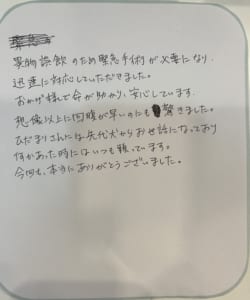 異物誤飲のため緊急手術が必要になり、
迅速に対応していただきました。
おかげ様で命が助かり、安心しています。
想像以上に回復が早いのにも驚きました。
ひだまりさんには先代犬からお世話になっており
何かあった時にはいつも頼っています。
今回も、本当にありがとうございました。